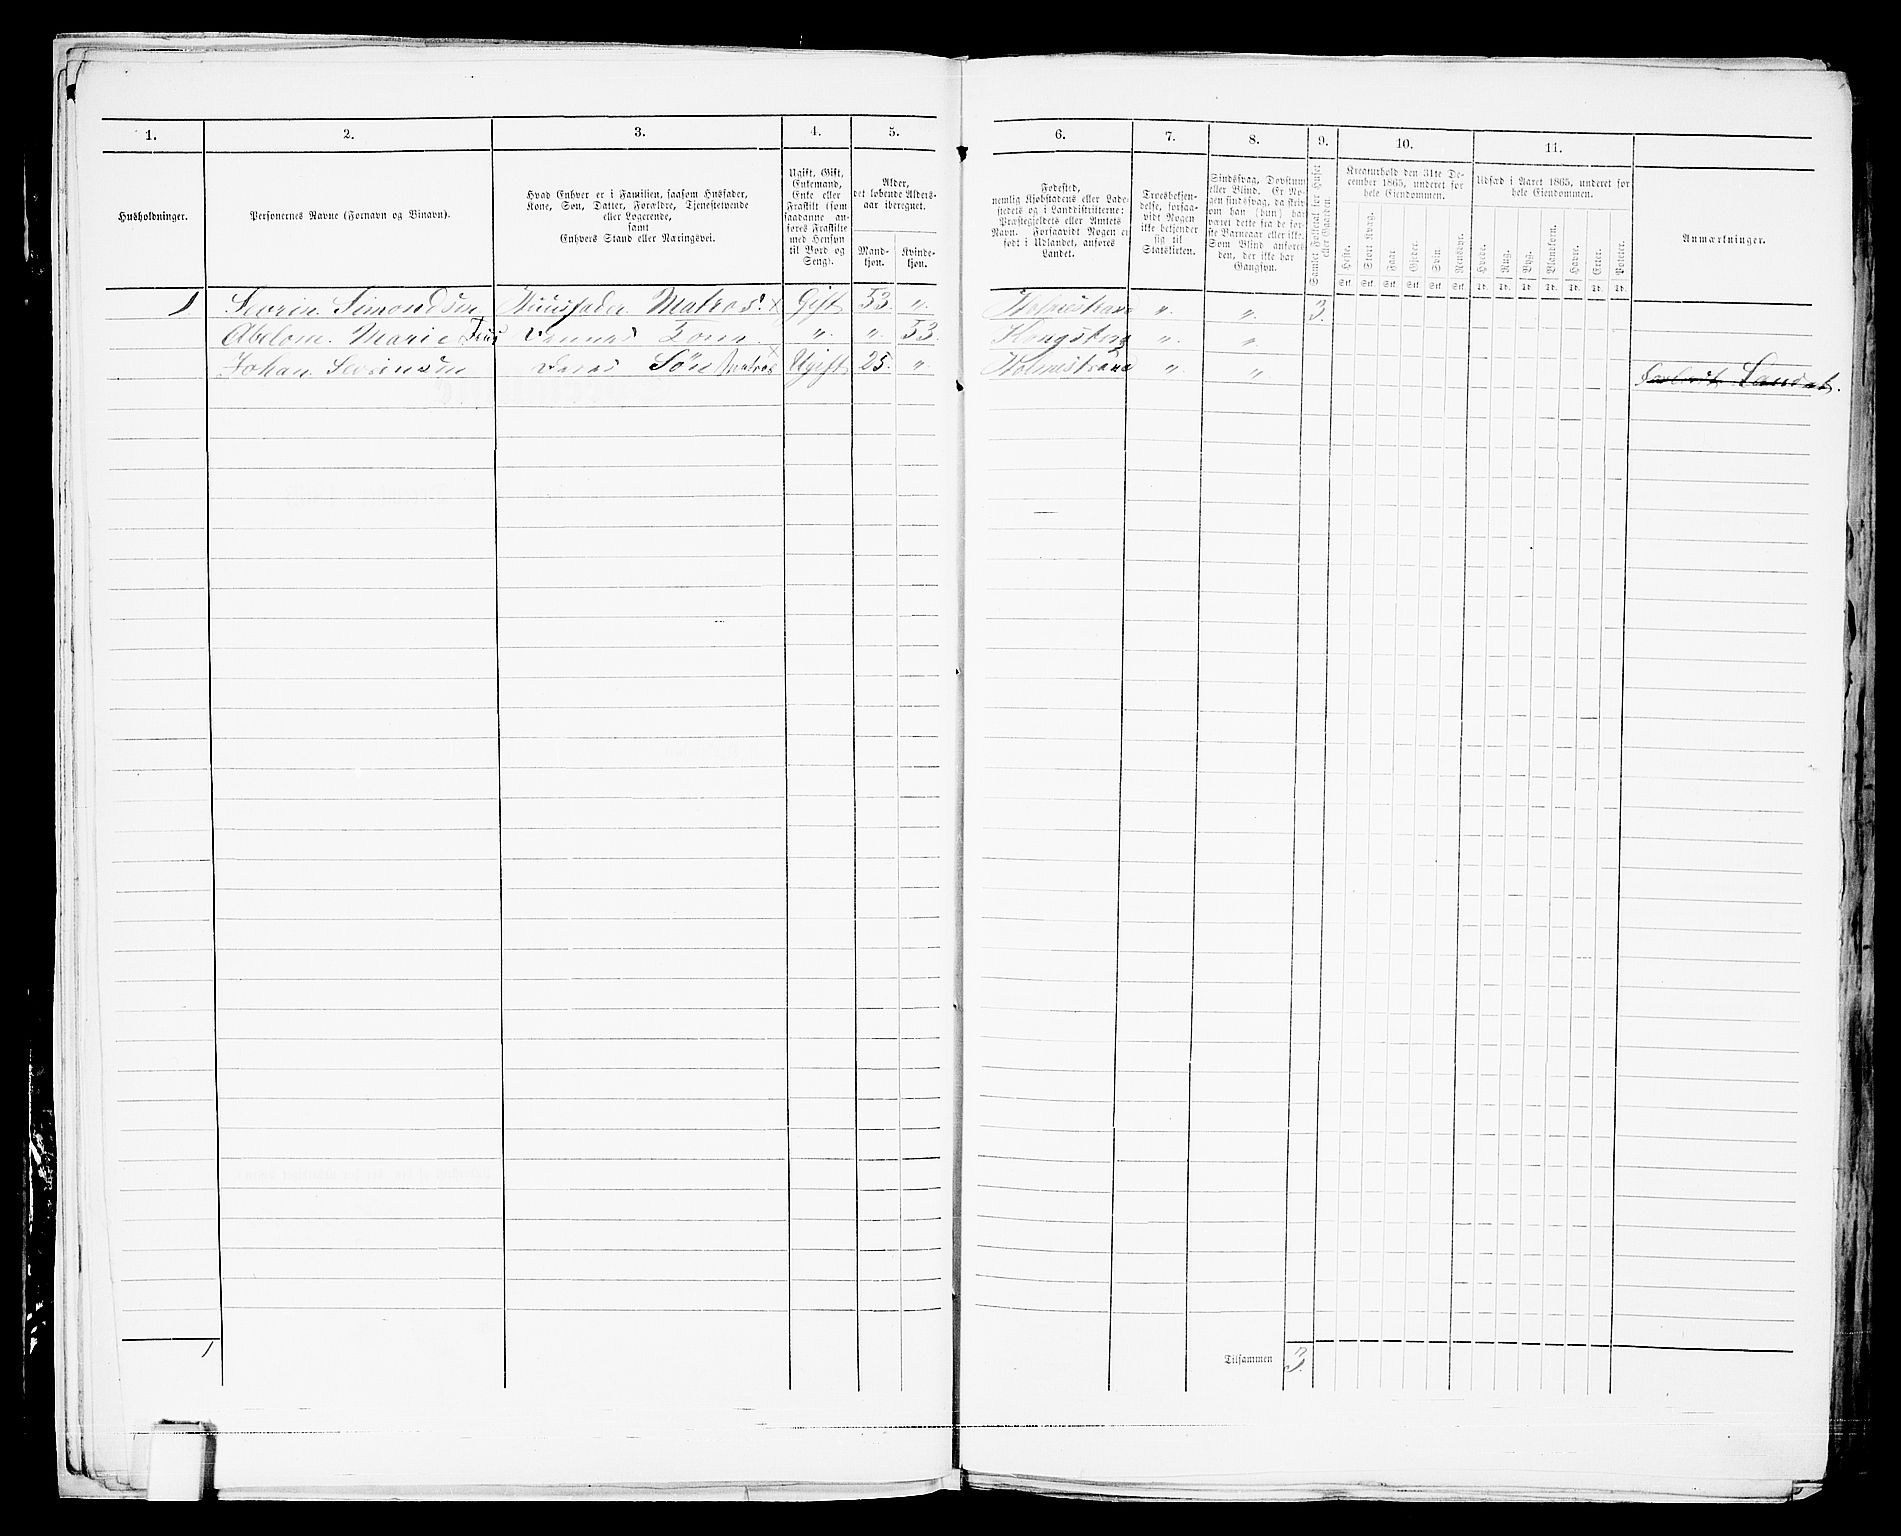 1. 2. 3. 4. 5. 6. 7. 8. 9. 10. 11.
Husholdninger.
Personernes Navne (Fornavn og Binavn).
Hvad Enhver er i Familien, saasom Husfader,
Kone, Søn, Datter, Forældre, Tjenestetyende
eller Logerende,
samt
Enhvers Stand eller Næringsvei.
Ugift, Gift,
Enkemand,
Enke eller
Fraskilt (som
saadanne an-
føres Fraskilte
med Hensyn
til Bord og
Seng).
Alder,
det løbende Alders-
aar iberegnet.
Mand-
kjøn.
Kvinde-
kjøn.
Fødested,
nemlig Kjøbstadens eller Lade-
stedets og i Landdistrikterne:
Præstegjeldets eller Amtets
Navn. Forsaavidt Nogen er
født i Udlandet, anføres
Landet.
Troesbekjen-
delse, forsaa-
vidt Nogen
ikke bekjender
sig til
Statskirken.
Sindssvag, Døvstum
eller Blind. Er No-
gen sindssvag, da skriv
om han (hun) har
været dette fra de før-
ste Barneaar eller ikke.
Som Blind anføres
den, der ikke har
Gangsyn.
Samlet Folketal for Huset
eller Gaarden.
Kreaturhold den 31te De-
cember 1865, underet for
hele Eiendommen.
Heste. Stort Kvæg. Faar. Gjeder. Svin. Rensdyr.
Stk. Stk. Stk. Stk. Stk. Stk.
Udsæd i Aaret 1865, underet for
hele Eiendommen.
Hvede. Rug. Byg. Blandkorn. Havre. Erter. Poteter.
Td. Td. Td. Td. Td. Td. Td.
Anmærkninger.
1 Sevrin Simondsen Huusfader Matros. x Gift 53. „ Holmestrand „ „ 3.
Abelone Marie Kone „ „ 53. Kongsberg „ „
Johan Sevrinsen Deres Søn Matros x Ugift 25. „ Holmestrand „ „
1
Tilsammen 3.